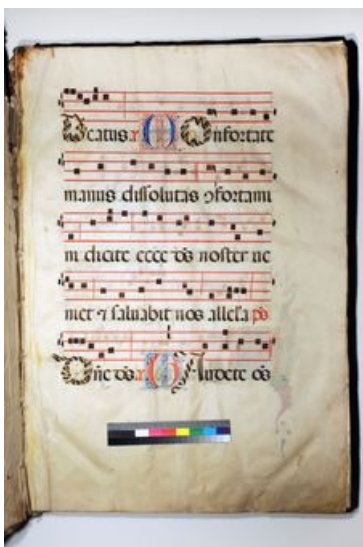 Beatus. a COnfortate
manus dissolutas ꝯfortami
ni dicite ecce ds̄ noster ue
niet ⁊ saluabit nos alleła p̄s
Dn̄e ds̄. a GAudete oēs